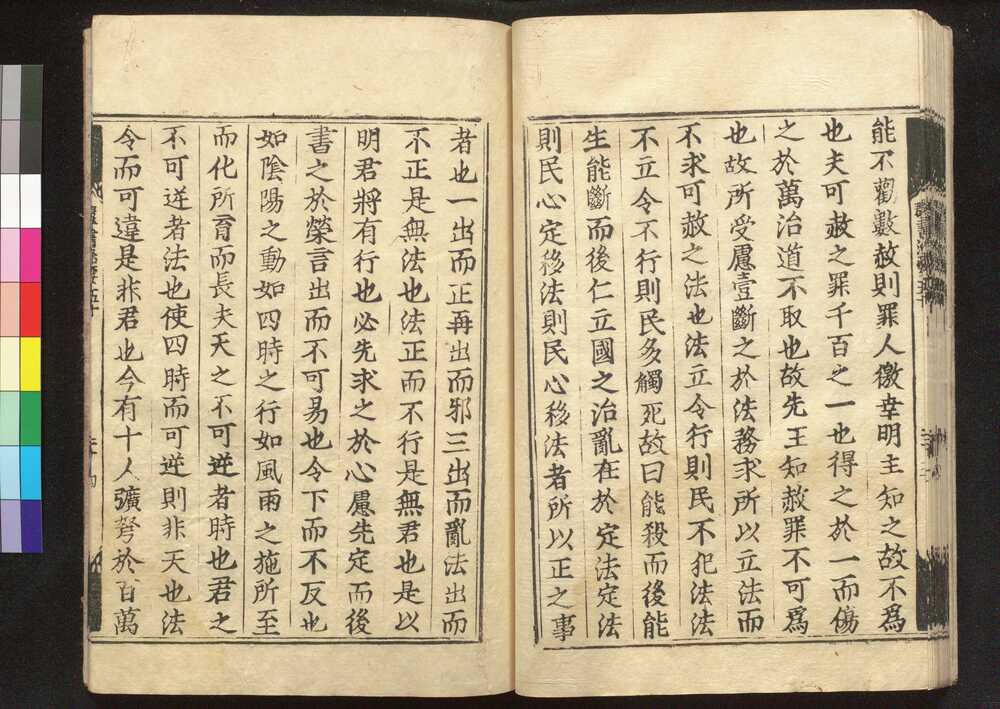 能不勸數赦則罪人徼幸明主知之故不爲
也夫可赦之罪千百之一也得之於一而傷
之於萬治道不取也故先王知赦罪不可爲
也故所受慮壹斷之於法務求所以立法而
不求可赦之法也法立令行則民不犯法法
不立令不行則民多觸死故曰能殺而後能
生能斷而後仁立國之治亂在於定法定法
則民心定移法則民心移法者所以正之事
者也一出而正再出而邪三出而亂法出而
不正是無法也法正而不行是無君也是以
明君將有行也必先求之於心慮先定而後
書之於榮言出而不可易也令下而不反也
如陰陽之動如四時之行如風雨之施所至
而化所育而長夫天之不可逆者時也君之
不可逆者法也使四時而可逆則非天也法
令而可違是非君也今有十人彍弩於百萬
羣書治要五十